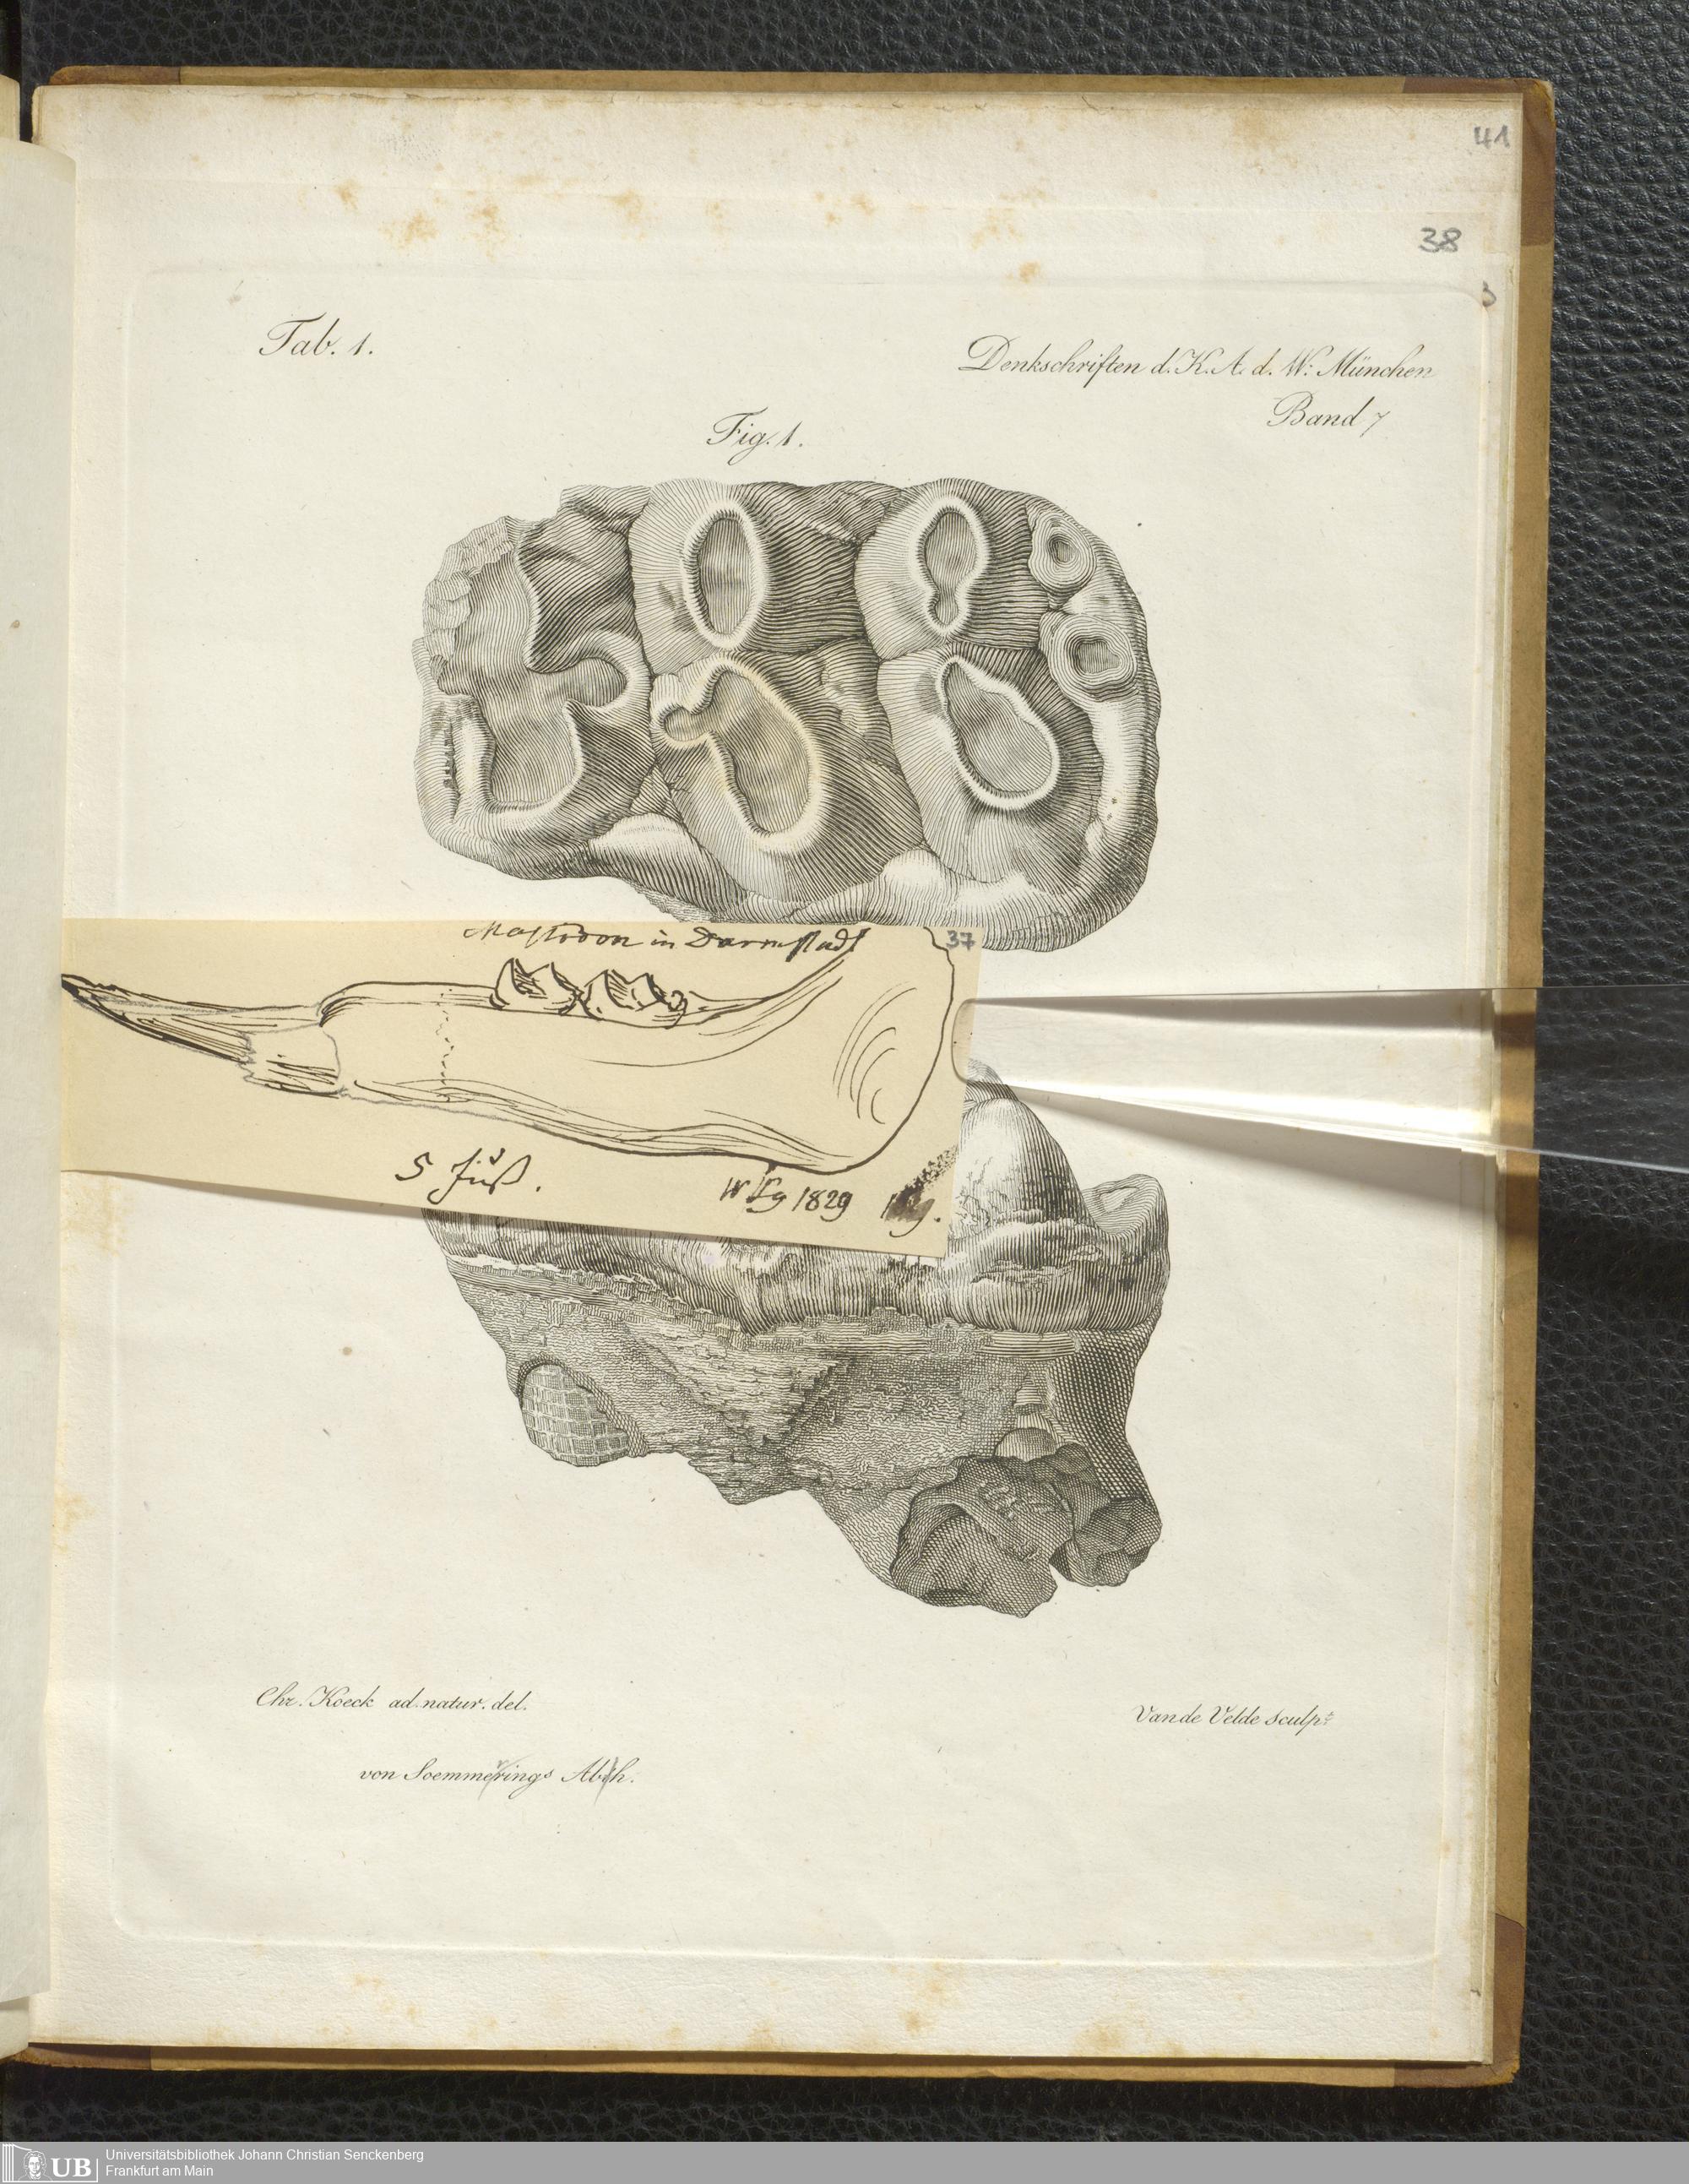 41
38
3
Tab. 1.
Denkschriften d. K. A. d. W: München
Band 7
Fig. 1.
Mastodon in Darmstadt
37
5 Fuß.
1829
Chr. Koeck ad natur. del.
Van de Velde sculpt
von Soemmerrings Abh.
UB
Universitätsbibliothek Johann Christian Senckenberg
Frankfurt am Main